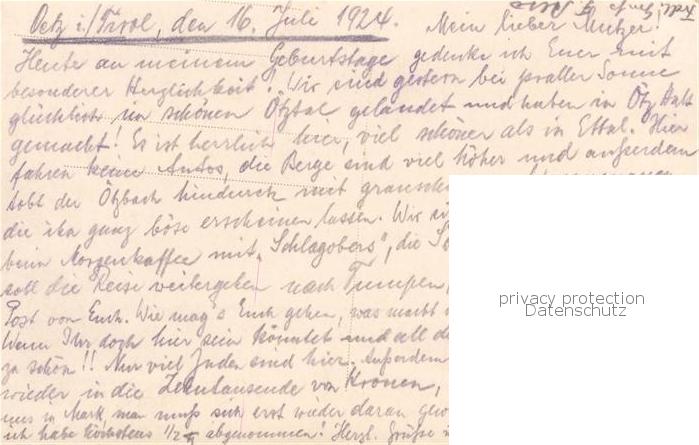 Oetz i./Tirol, den 16. Juli 1924. Mein lieber Mutzer!
Heute an meinem Geburtstage gedenke ich Euer mit
besonderer Herzlichkeit! Wir sind gestern bei praller Sonne
glücklich im schönen Ötztal gelandet und haben in Ötz Halt
gemacht! Es ist herrlich hier, viel schöner als in Ettal. Hier
fahren keine Autos, die Berge sind viel höher und ausserdem
tobt der Ötzbach hindurch mit
die ihn ganz böse erscheinen lassen. Wir
beim Morgenkaffee mit „Schlagobers", die
soll die Reise weitergehen nach Tumpen,
Post von Euch. Wie mag's Euch gehen, was macht
Wenn Ihr doch hier sein könntet und all
zu schön!! Nur viel Juden sind hier. Ausserdem
wieder in die Zehntausende von Kronen,
uns in Mark, man muss sich erst wieder daran
ich habe höchstens 1/2 ℔ abgenommen! Herzl. Grüße
privacy protection
Datenschutz